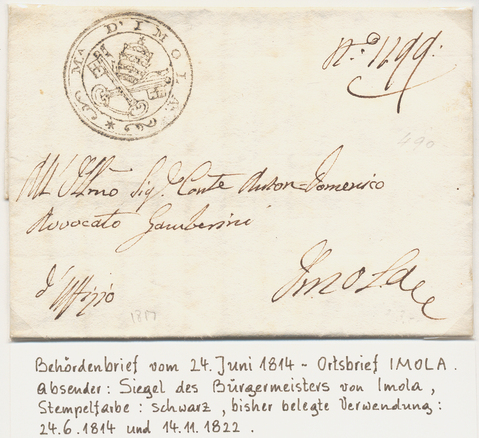 Mª D'IMOLA
N.º 1199.
490
All' Illmo Sig.e Conte Anton-Domenico
Avvocato Gamberini
d'Uffizio
Imola
1817
Behördenbrief vom 24. Juni 1814 - Ortsbrief IMOLA.
Absender: Siegel des Bürgermeisters von Imola,
Stempelfarbe: schwarz, bisher belegte Verwendung:
24.6.1814 und 14.11.1822.